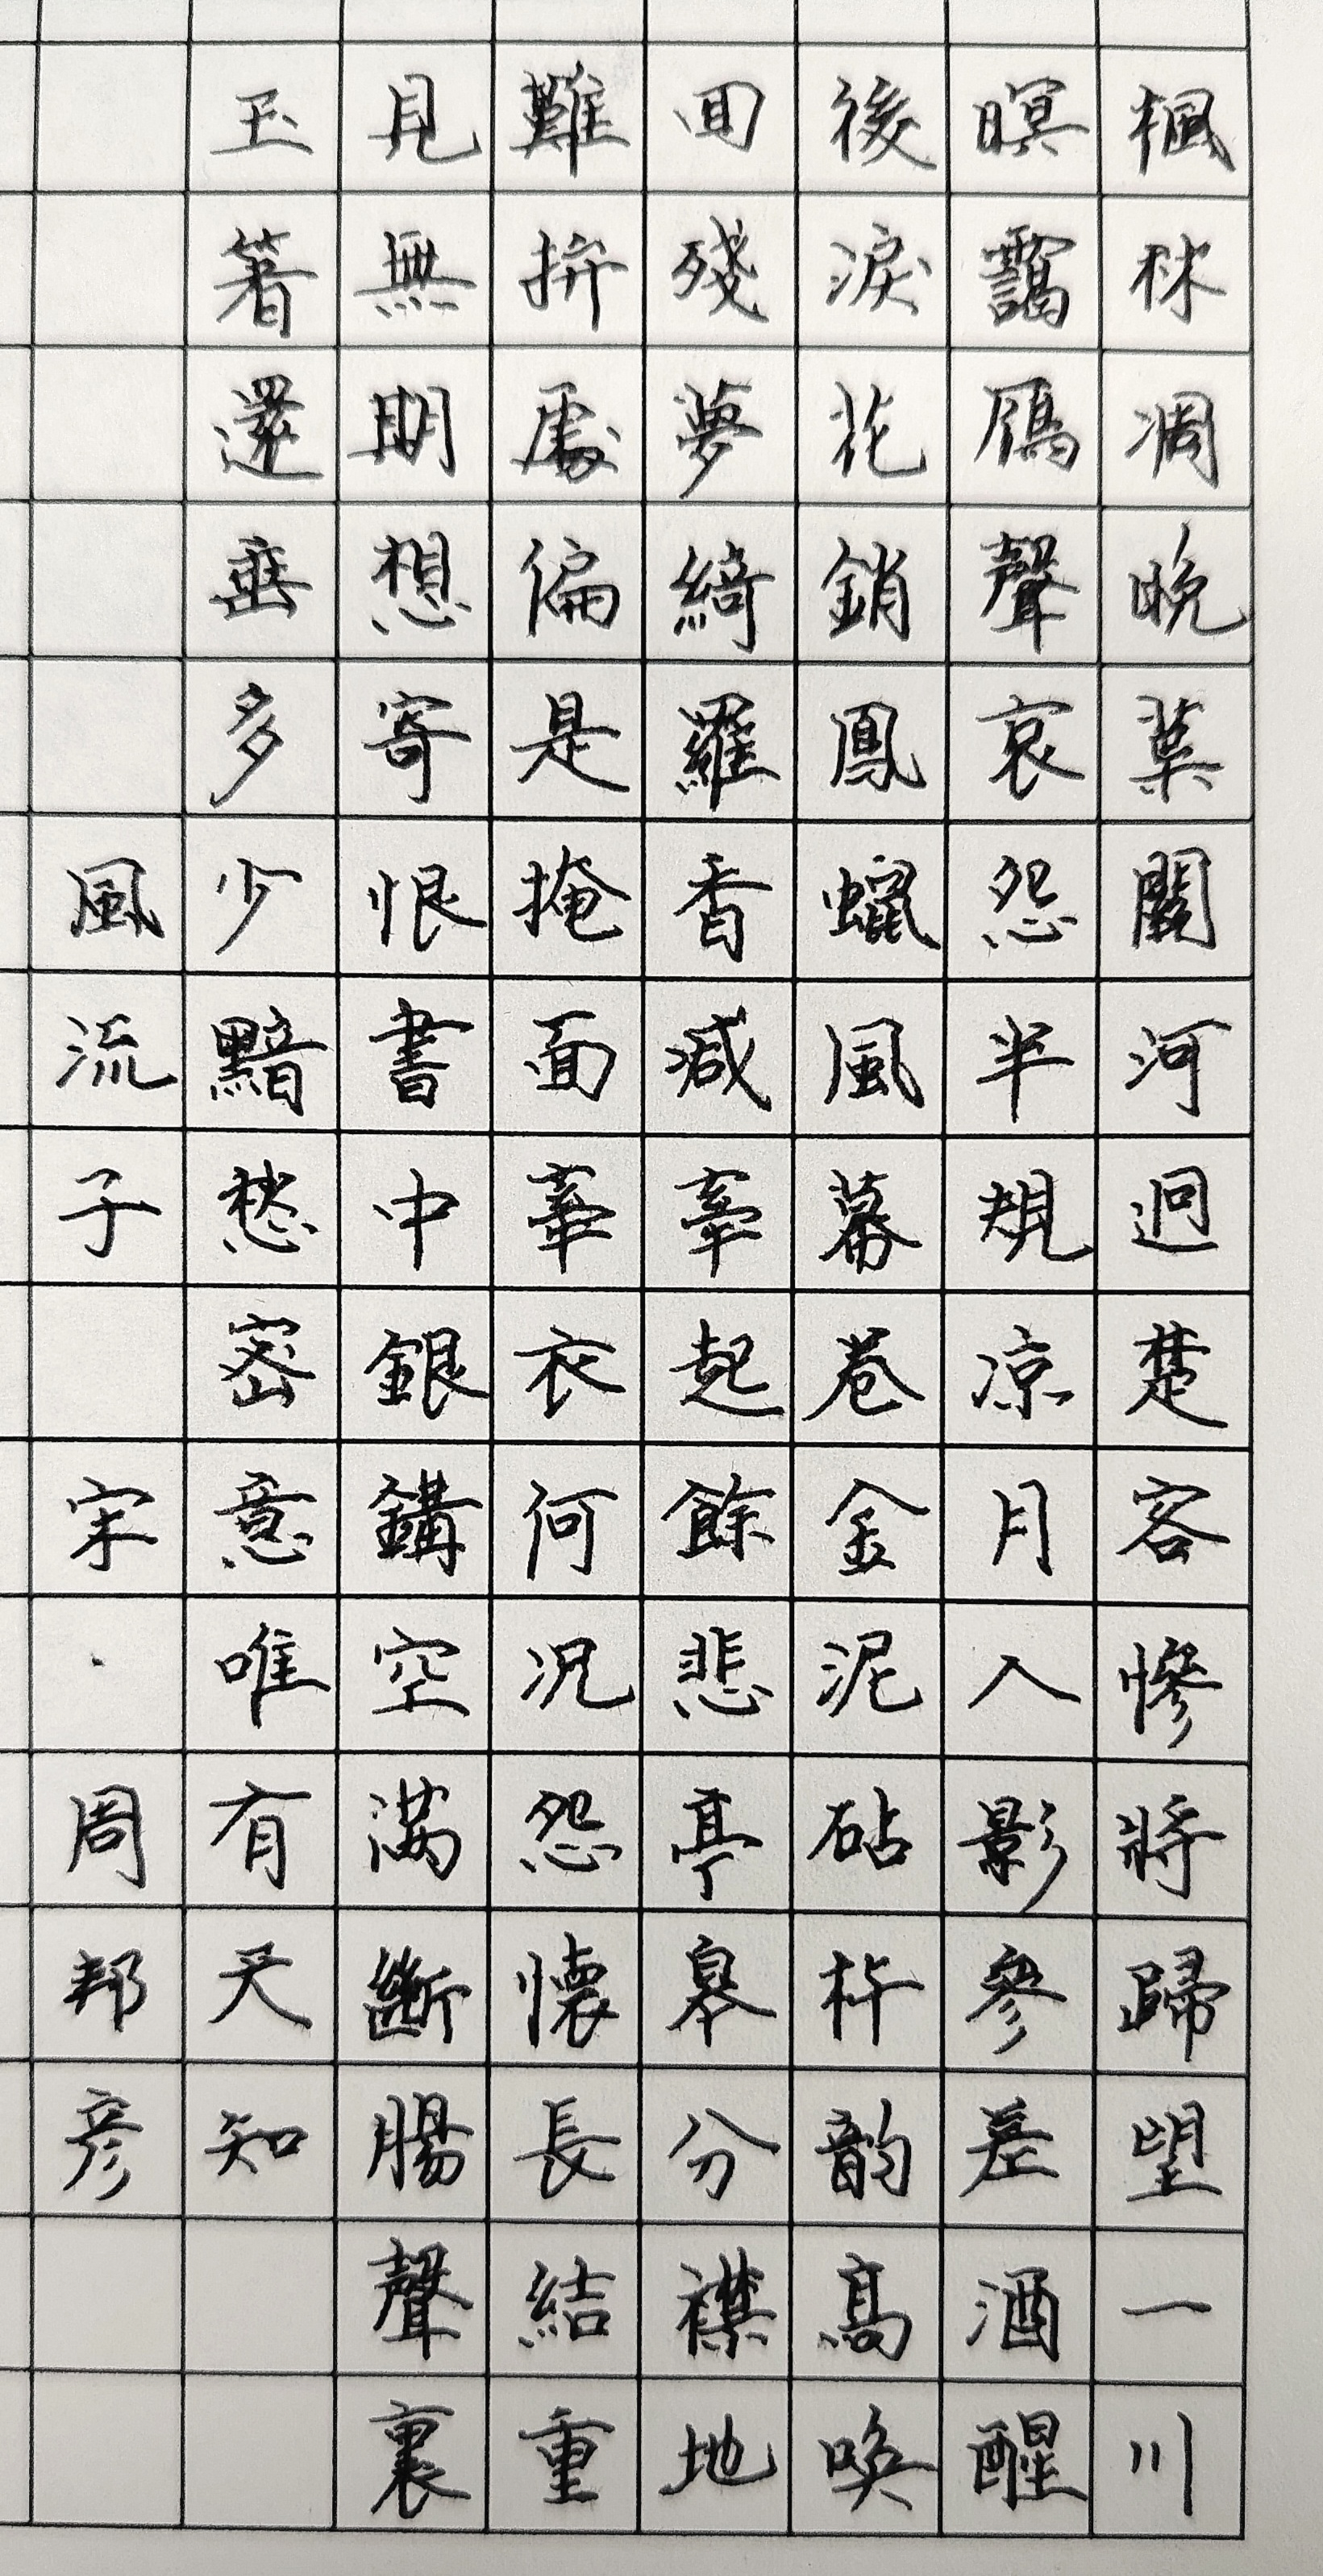 楓林凋晚葉關河迥楚客慘將歸望一川
暝靄鴈聲哀怨半規涼月入影參差酒醒
後淚花銷鳳蠟風幕卷金泥砧杵韵高喚
回殘夢綺羅香減牽起餘悲亭皋分襟地
難拚處偏是掩面牽衣何況怨懷長結重
見無期想寄恨書中銀鉤空滿斷腸聲裏
玉箸還垂多少黯愁密意唯有天知
風流子 宋·周邦彥